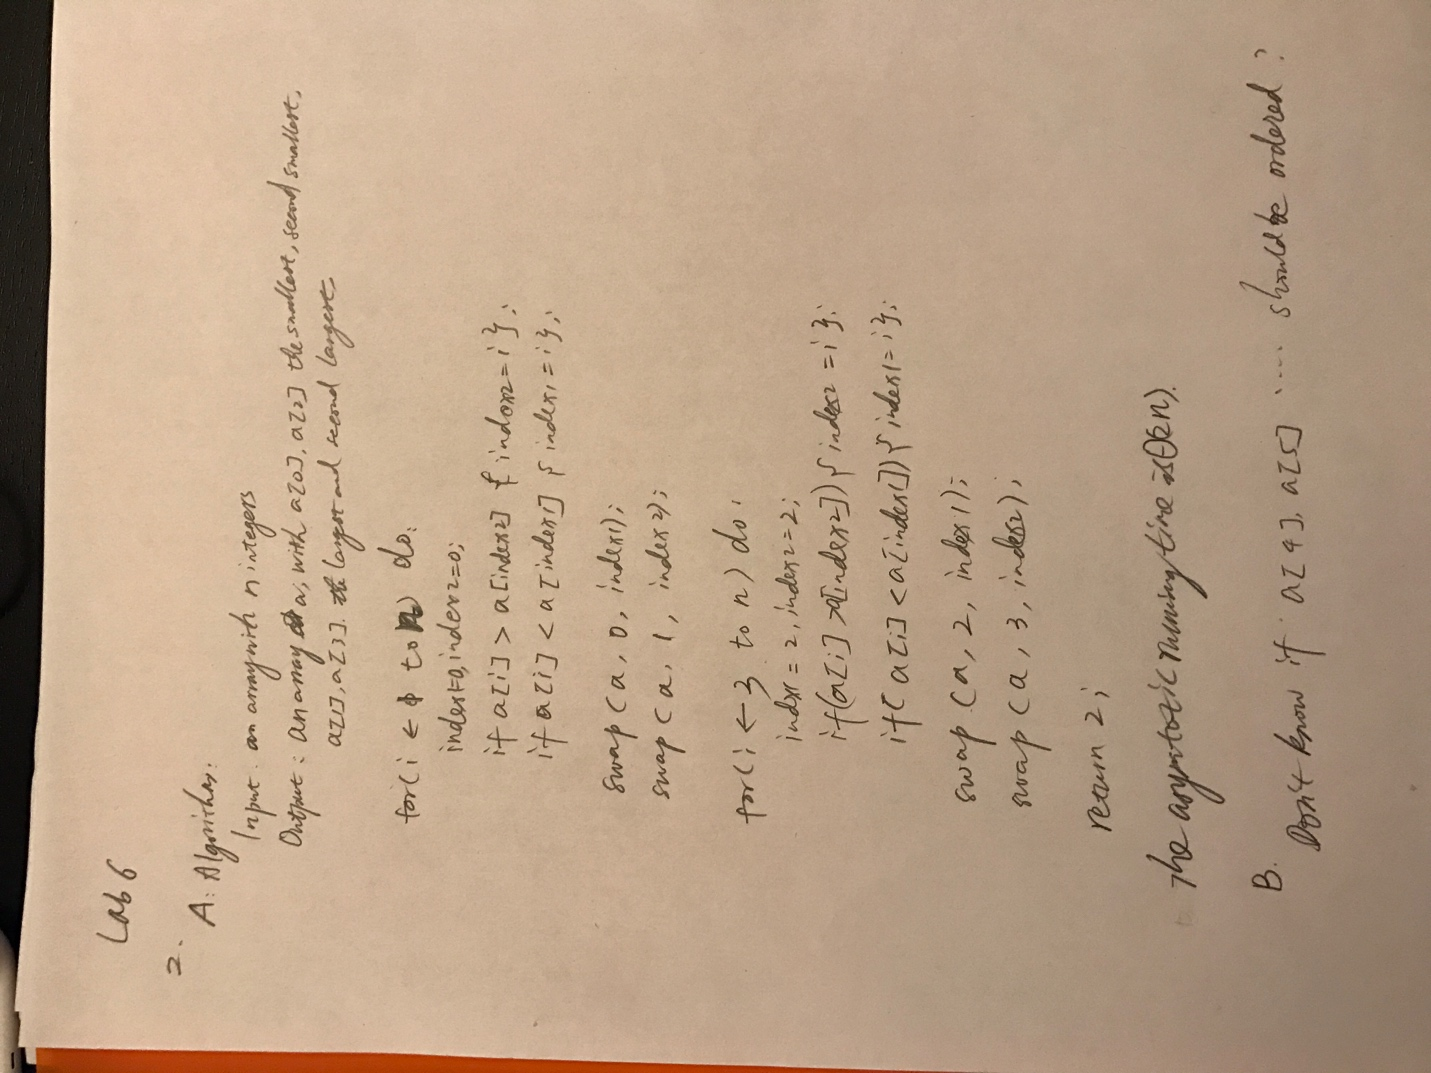 Lab 6
2.
A: Algorithm:
Input: an array with n integers
Output: an array a, with a[0], a[2] the smallest, second smallest,
a[1], a[3]. the largest and second largest
for(i ← 0 to n) do:
index1=0, index2=0;
if a[i] > a[index2] { index2=i};
if a[i] < a[index1] { index1=i};
swap (a, 0, index1);
swap (a, 1, index2);
for(i ← 3 to n) do:
index1 = 2, index2=2;
if(a[i] >a[index2]){ index2 =i};
if( a[i] <a[index1]){ index1=i};
swap (a, 2, index1);
swap (a, 3, index2);
return 2;
The asymtotic running time is Θ(n).
B.
Don't know if a[4], a[5] .... should be ordered?